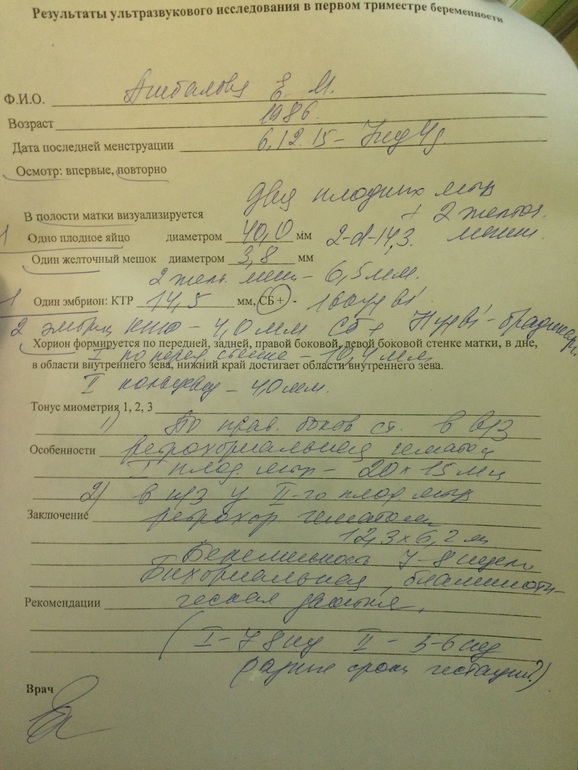 Результаты ультразвукового исследования в первом триместре беременности
Ф.И.О. Е. М.
Возраст 1986.
Дата последней менструации 6.12.15 – 7нед 4д
Осмотр: впервые, повторно
два плодных
В полости матки визуализируется + 2 желточ.
1 Одно плодное яйцо диаметром 40,0 мм 2-d-14,3. мешк.
Один желточный мешок диаметром 3,8 мм
2 желт. меш – 6,5мм.
1 Один эмбрион: КТР 14,5 мм, СБ + - 160 уд в 1'
2 эмбрион КТР – 4,0 мм СБ + уд в 1' -
Хорион формируется по передней, задней, правой боковой, левой боковой стенке матки, в дне,
I по перед стенке – 10,4мм
в области внутреннего зева, нижний край достигает области внутреннего зева.
II – 4,0мм.
Тонус миометрия 1, 2, 3
1) По прав. боков ст. в с/3
Особенности ретрохориальная гематом
I плод – 20 х 15 мм
2) в н/3 у II-го плод
Заключение ретрохор гематома
12,3 х 6,2 м
Беременность 7-8 недель
Бихориальная, биамниоти-
Рекомендации ческая двойня.
( I – 7-8 нед II – 5-6 нед
(разные сроки гестации?)
Врач